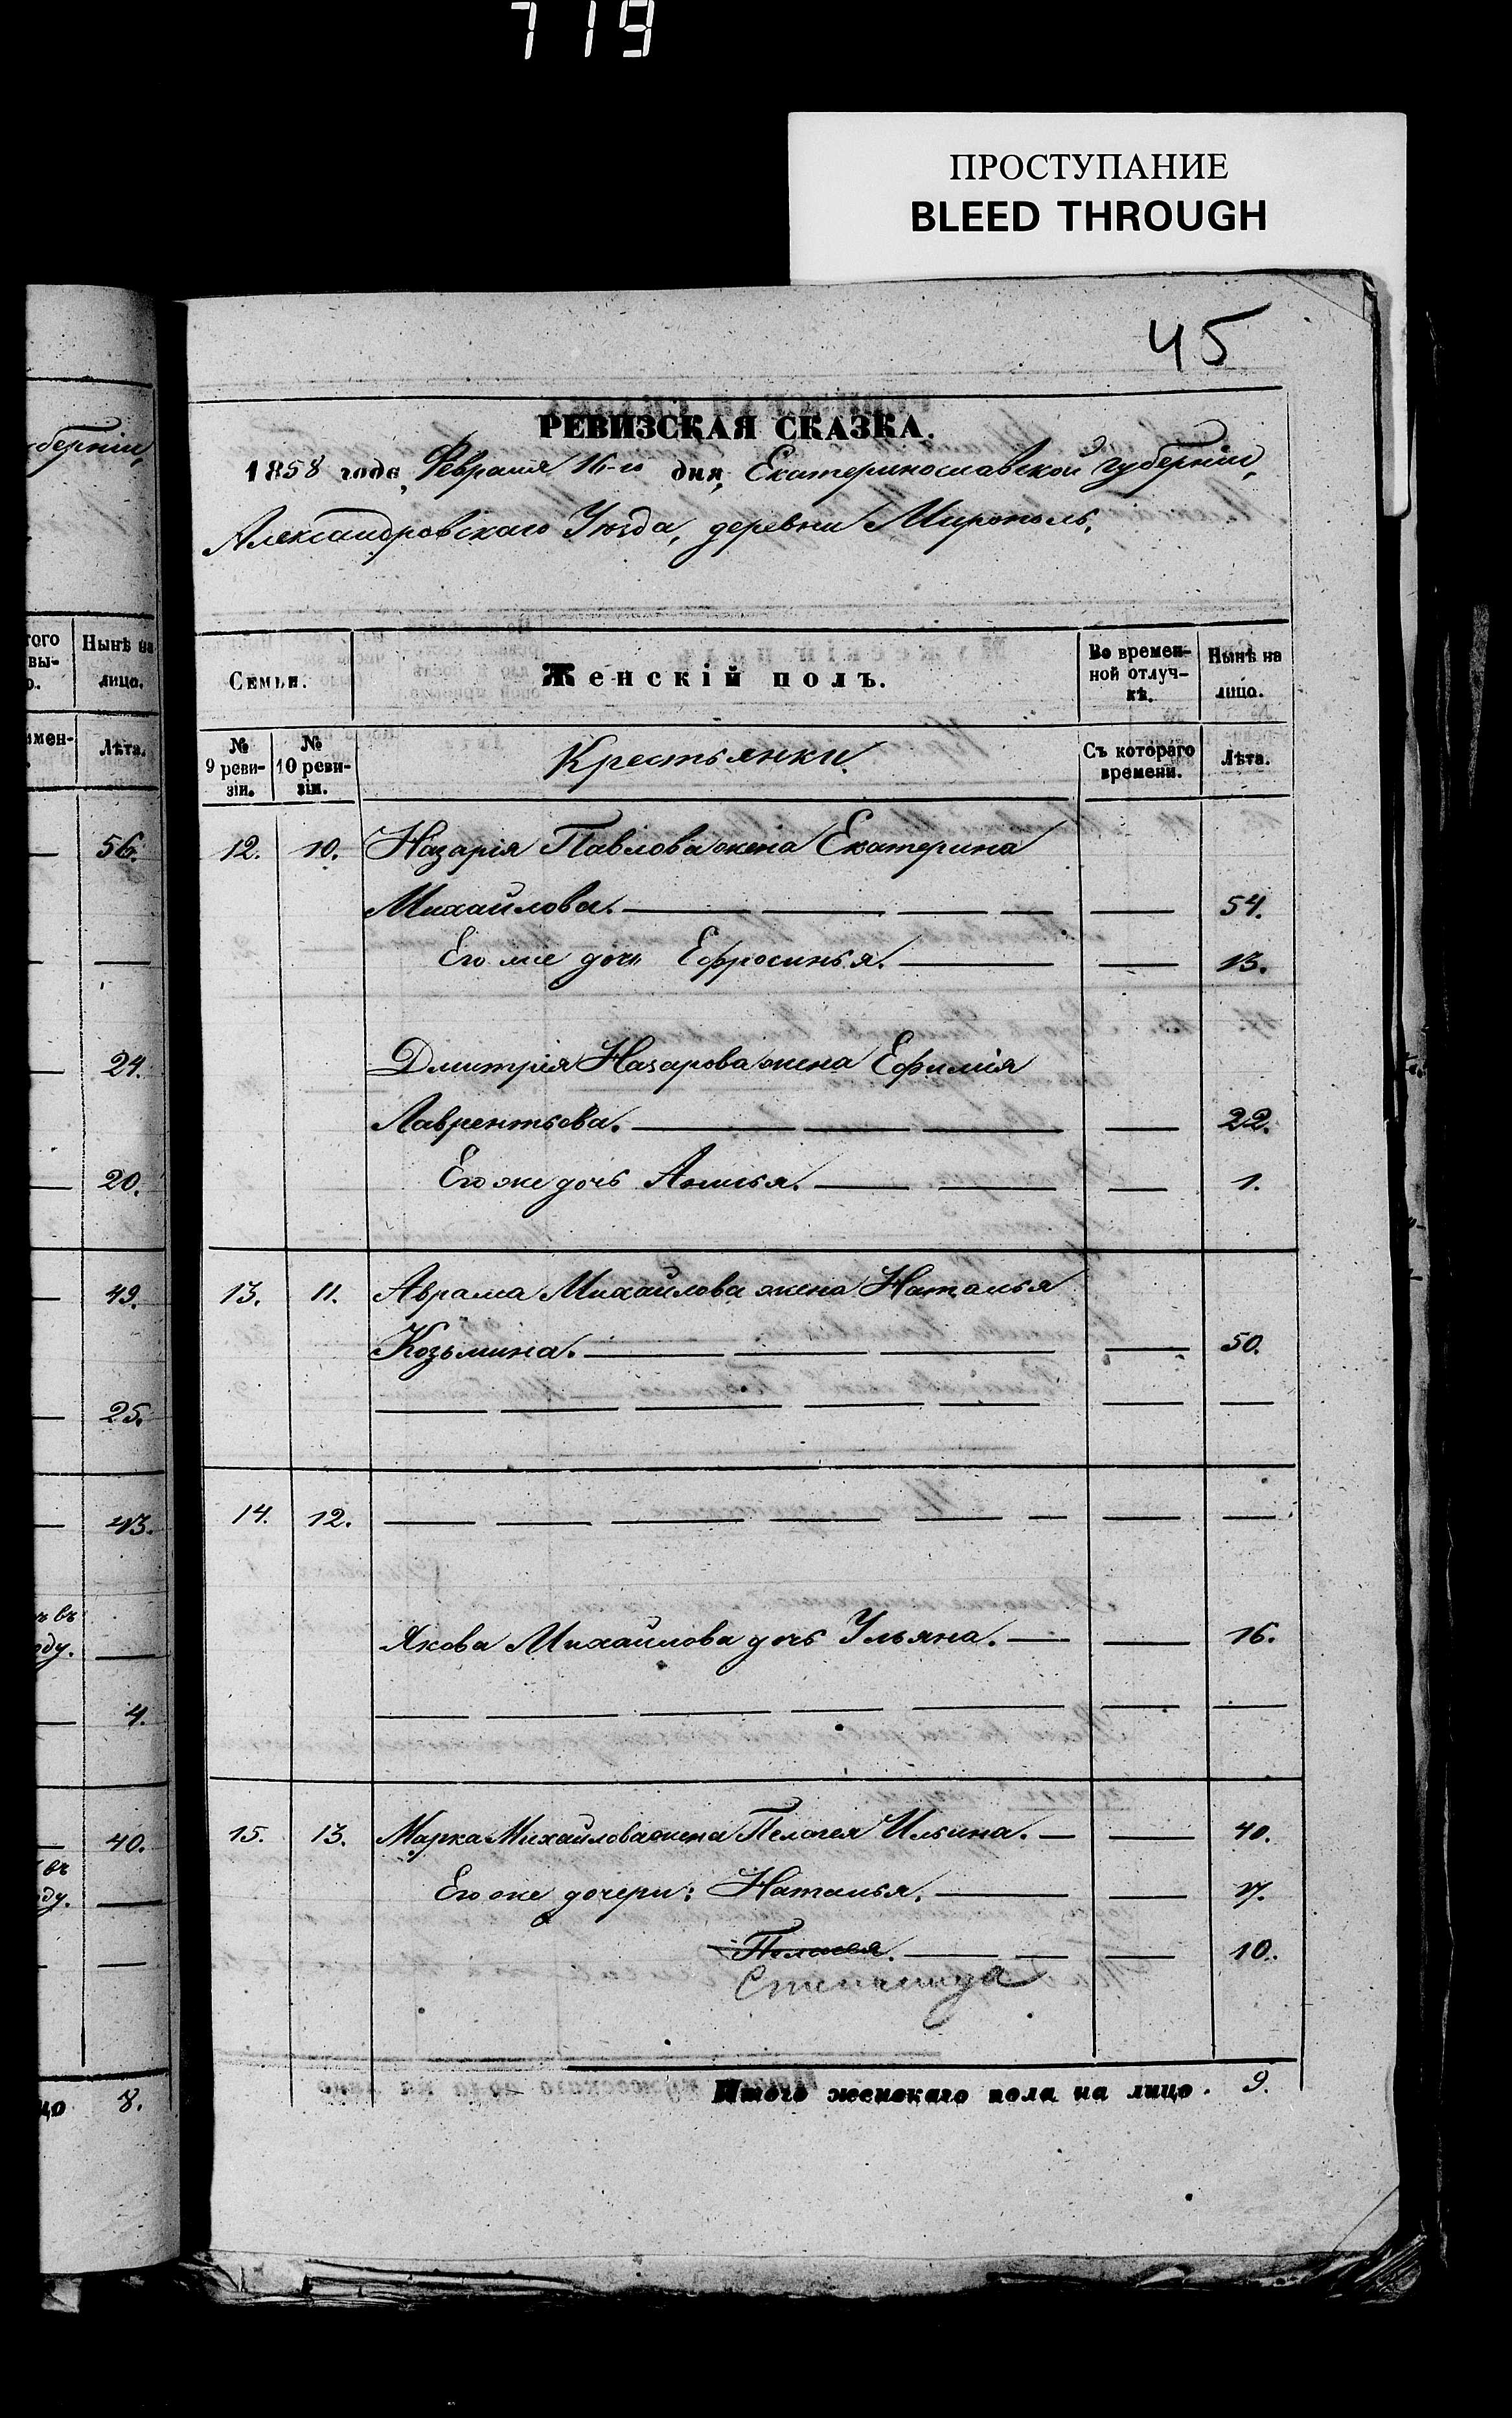 719
ПРОСТУПАНИЕ
BLEED THROUGH
45
РЕВИЗСКАЯ СКАЗКА.
1858 года, Февраля 16-го дня, Екатеринославской губернiи,
Александровскаго Уѣзда, деревни Мирополь.
Семьи.
Женскiй полъ.
Во времен-
ной отлуч-
кѣ.
Нынѣ на
лицо.
№
9 реви-
зiи.
№
10 реви-
зiи.
Крестьянки.
Съ котораго
времени.
Лѣта.
12. 10. Назарiя Павлова жена Екатерина
Михайлова. 54.
Его же дочь Ефросинья. 13.
Дмитрiя Назарова жена Ефимiя
Лаврентьева. 22.
Его же дочь Анисья. 1.
13. 11. Аврама Михайлова жена Наталья
Козьмина. 50.
14. 12.
Якова Михайлова дочь Ульяна. 16.
15. 13. Марка Михайлова жена Пелагея Ильина. 40.
Его же дочери: Наталья. 17.
10.
Степанида
Итого женскаго пола на лицо. 9.
бернiи,
того
вы-
о.
Нынѣ на
лицо.
мен-
Лѣта.
56.
24.
20.
49.
25.
43.
въ
оду.
4.
40.
въ
оду.
цо 8.